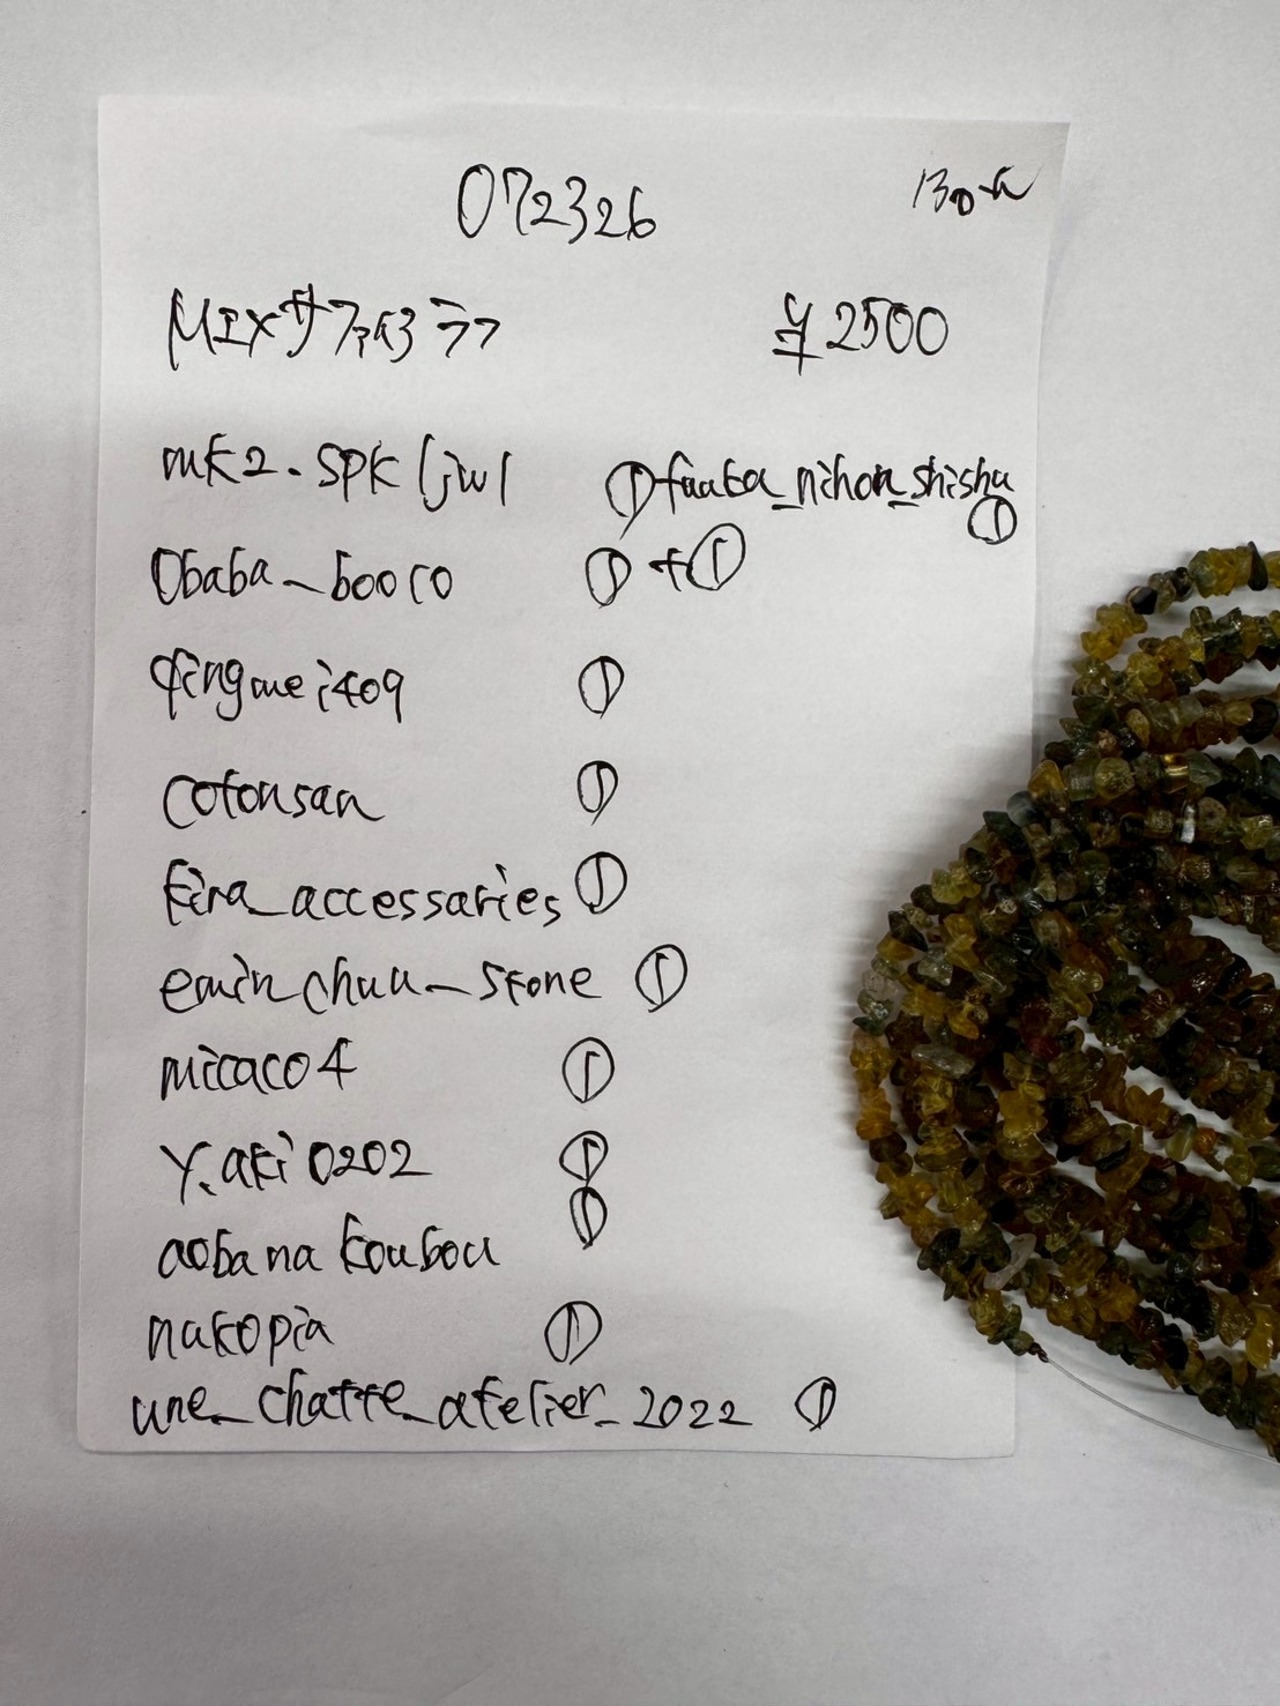 072326
MIXサファイヤ
¥2500
mk2.spkljwl ① fuuka_nihon_shishu ①
obaba_booco ①+①
qingmei409 ①
cotonsan ①
kira_accessaries ①
eminchuu_stone ①
micaco4 ①
y.aki0202 ①
aobanakoubou ①
nakopia ①
une_chatte_atelier_2022 ①